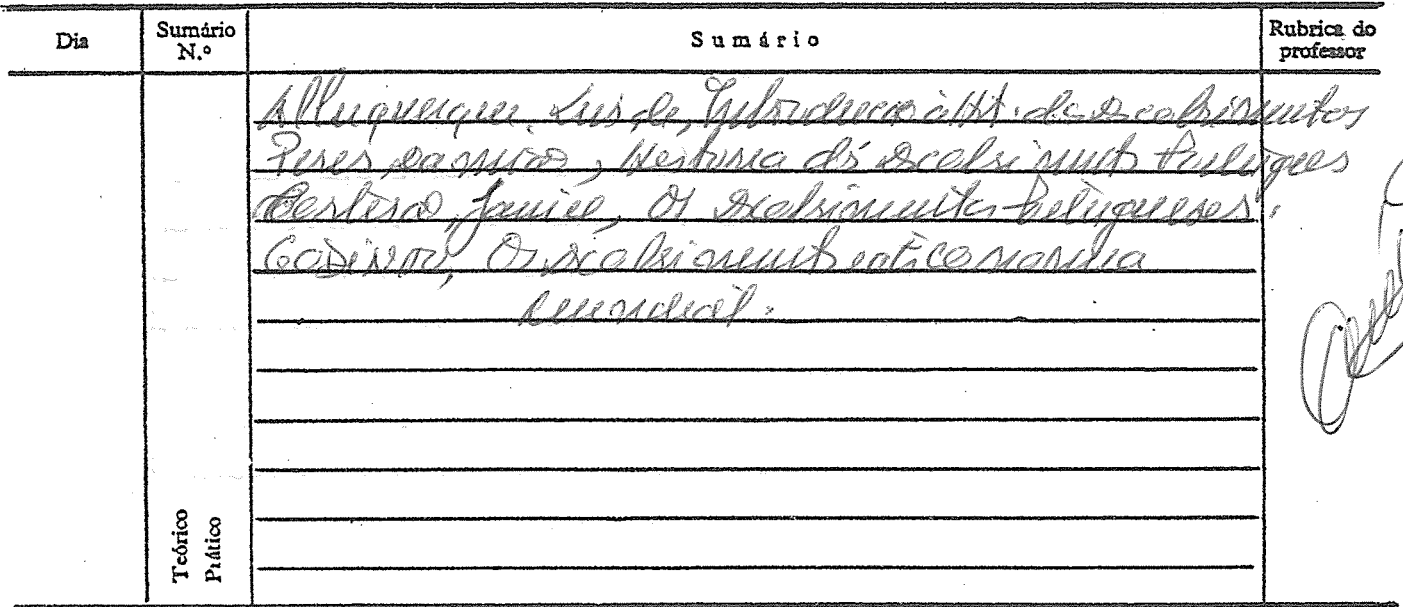 Dia
Sumário N.º
Sumário
Rubrica do professor
Albuquerque, Luis de, Introdução à Hist. dos Descobrimentos
Peres, Damião, História dos Descobrimentos Portugueses
Cortesão, Jaime, Os Descobrimentos Portugueses.
Godinho, Os Descobrimentos e a Economia
Mundial.
Teórico
Prático